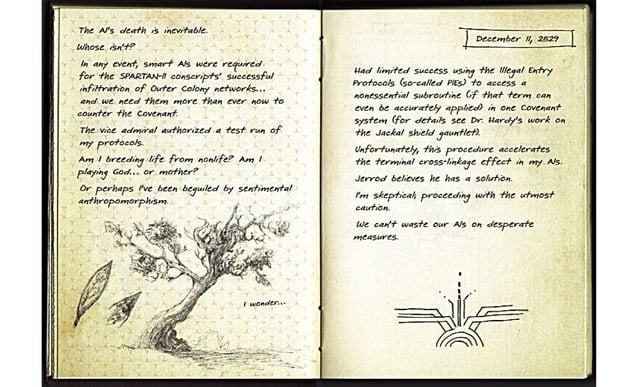 The AI's death is inevitable.
Whose isn't?
In any event, smart AIs were required
for the SPARTAN-II conscripts' successful
infiltration of Outer Colony networks...
and we need them more than ever now to
counter the Covenant.
The vice admiral authorized a test run of
my protocols.
Am I breeding life from nonlife? Am I
playing God... or mother?
Or perhaps I've been beguiled by sentimental
anthropomorphism.
I wonder...
December 11, 2529
Had limited success using the Illegal Entry
Protocols (so-called PIEs) to access a
nonessential subroutine (if that term can
even be accurately applied) in one Covenant
system (for details see Dr. Hardy's work on
the Jackal shield gauntlet).
Unfortunately, this procedure accelerates
the terminal cross-linkage effect in my AIs.
Jerrod believes he has a solution.
I'm skeptical; proceeding with the utmost
caution.
We can't waste our AIs on desperate
measures.